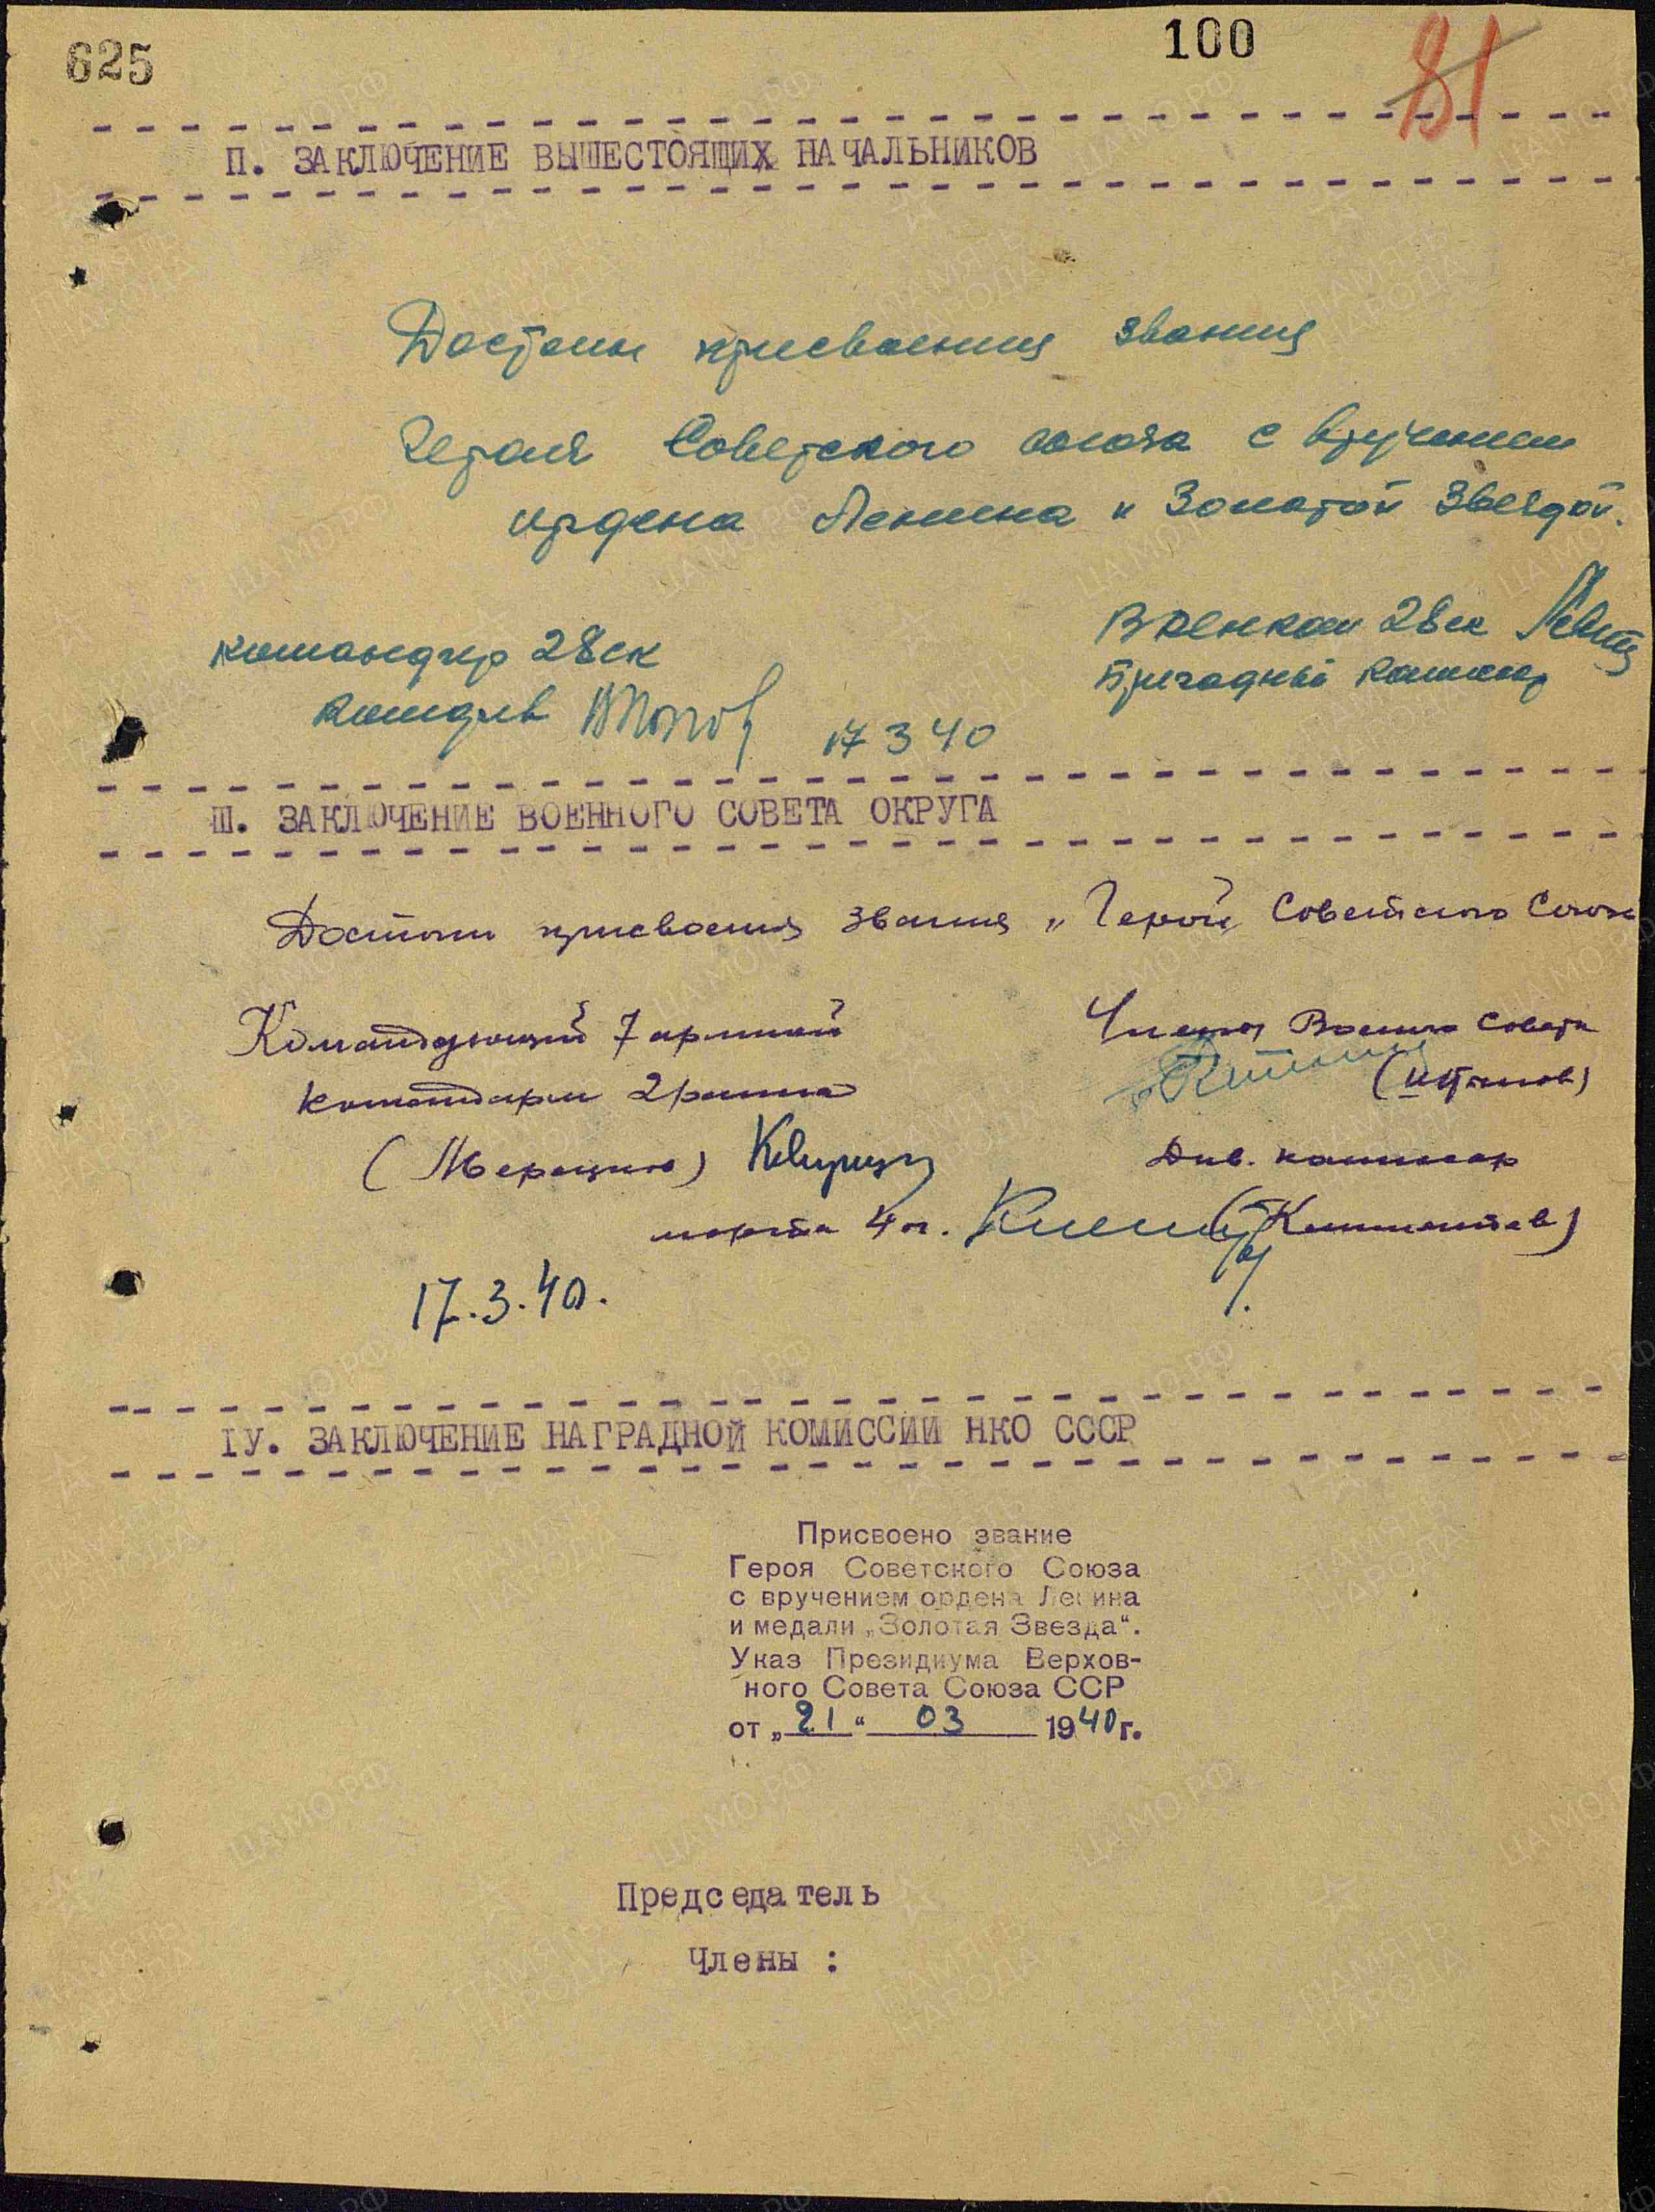 625
100
81
П. ЗАКЛЮЧЕНИЕ ВЫШЕСТОЯЩИХ НАЧАЛЬНИКОВ
Достоин присвоения звания
Героя Советского союза с вручением
ордена Ленина и Золотой Звездой.
командир 28ск
комдив
17 3 40
Военком 28ск
Бригадный комиссар
Ш. ЗАКЛЮЧЕНИЕ ВОЕННОГО СОВЕТА ОКРУГА
Достоин присвоения звания „Герой Советского Союза
Командующий 7 армией
командарм 2 ранга
(Мерецков)
Члены Военного Совета
Див. комиссар
марта 40г.
17.3.40.
IУ. ЗАКЛЮЧЕНИЕ НАГРАДНОЙ КОМИССИИ НКО СССР
Присвоено звание
Героя Советского Союза
с вручением ордена Ленина
и медали „Золотая Звезда“.
Указ Президиума Верхов-
ного Совета Союза ССР
от „21“ 03 1940г.
Председатель
Члены :
ЦАМО.РФ
ПАМЯТЬ
НАРОДА